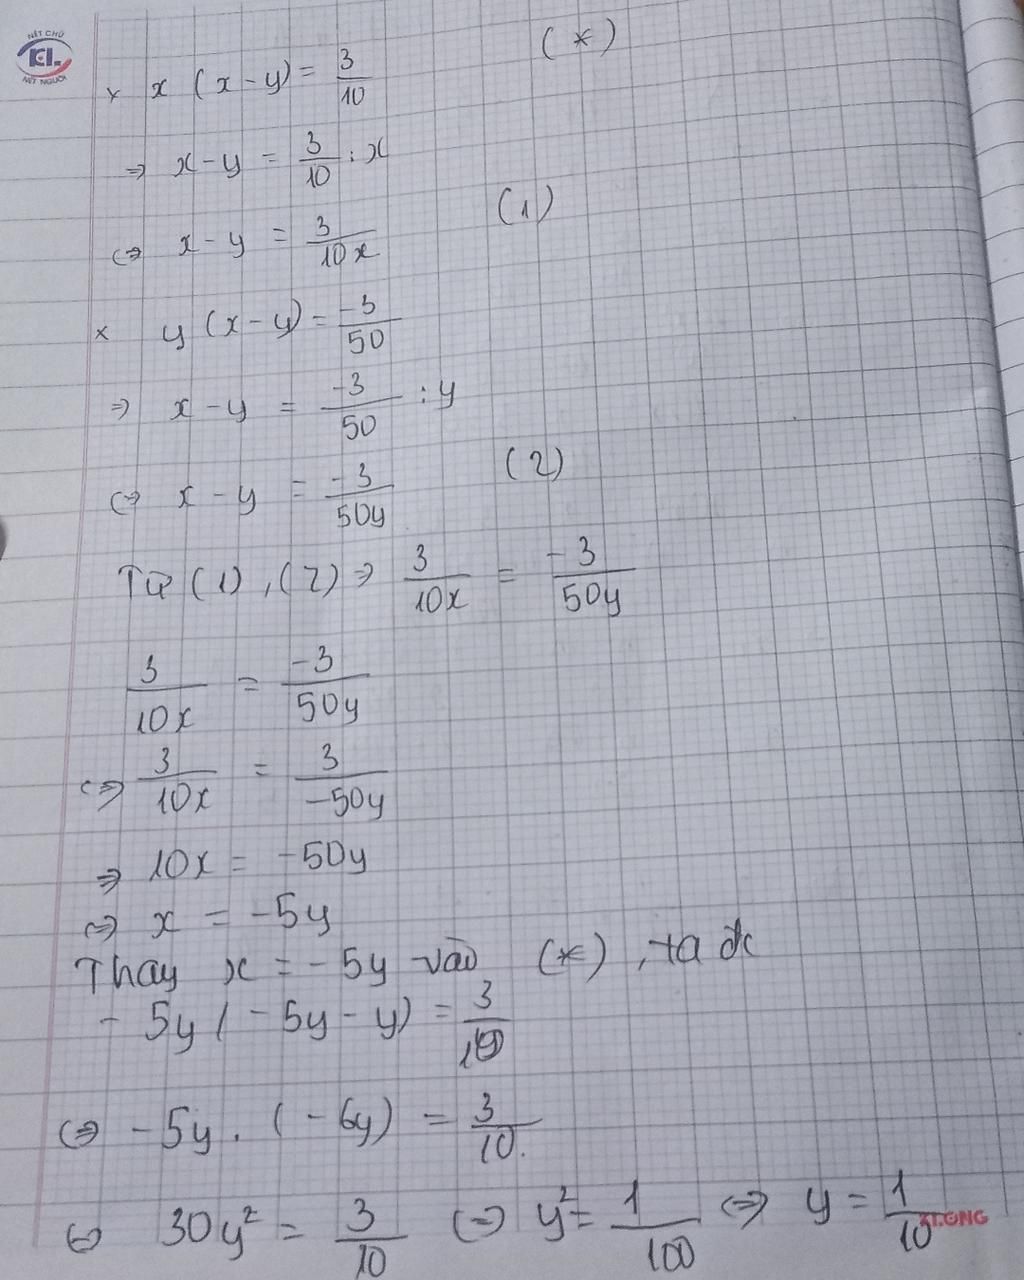 NÉT CHỮ
KL
NẾT NGƯỜI
x x (x - y) = 3/10 (*)
=> x - y = 3/10 : x
<=> x - y = 3/10x (1)
x y (x - y) = -3/50
=> x - y = -3/50 : y
<=> x - y = -3/50y (2)
Từ (1), (2) => 3/10x = -3/50y
3/10x = -3/50y
<=> 3/10x = 3/-50y
=> 10x = -50y
<=> x = -5y
Thay x = -5y vào (*), ta đc
- 5y (-5y - y) = 3/10
<=> -5y . (-6y) = 3/10.
<=> 30y² = 3/10 <=> y² = 1/100 <=> y = 1/10
KLONG